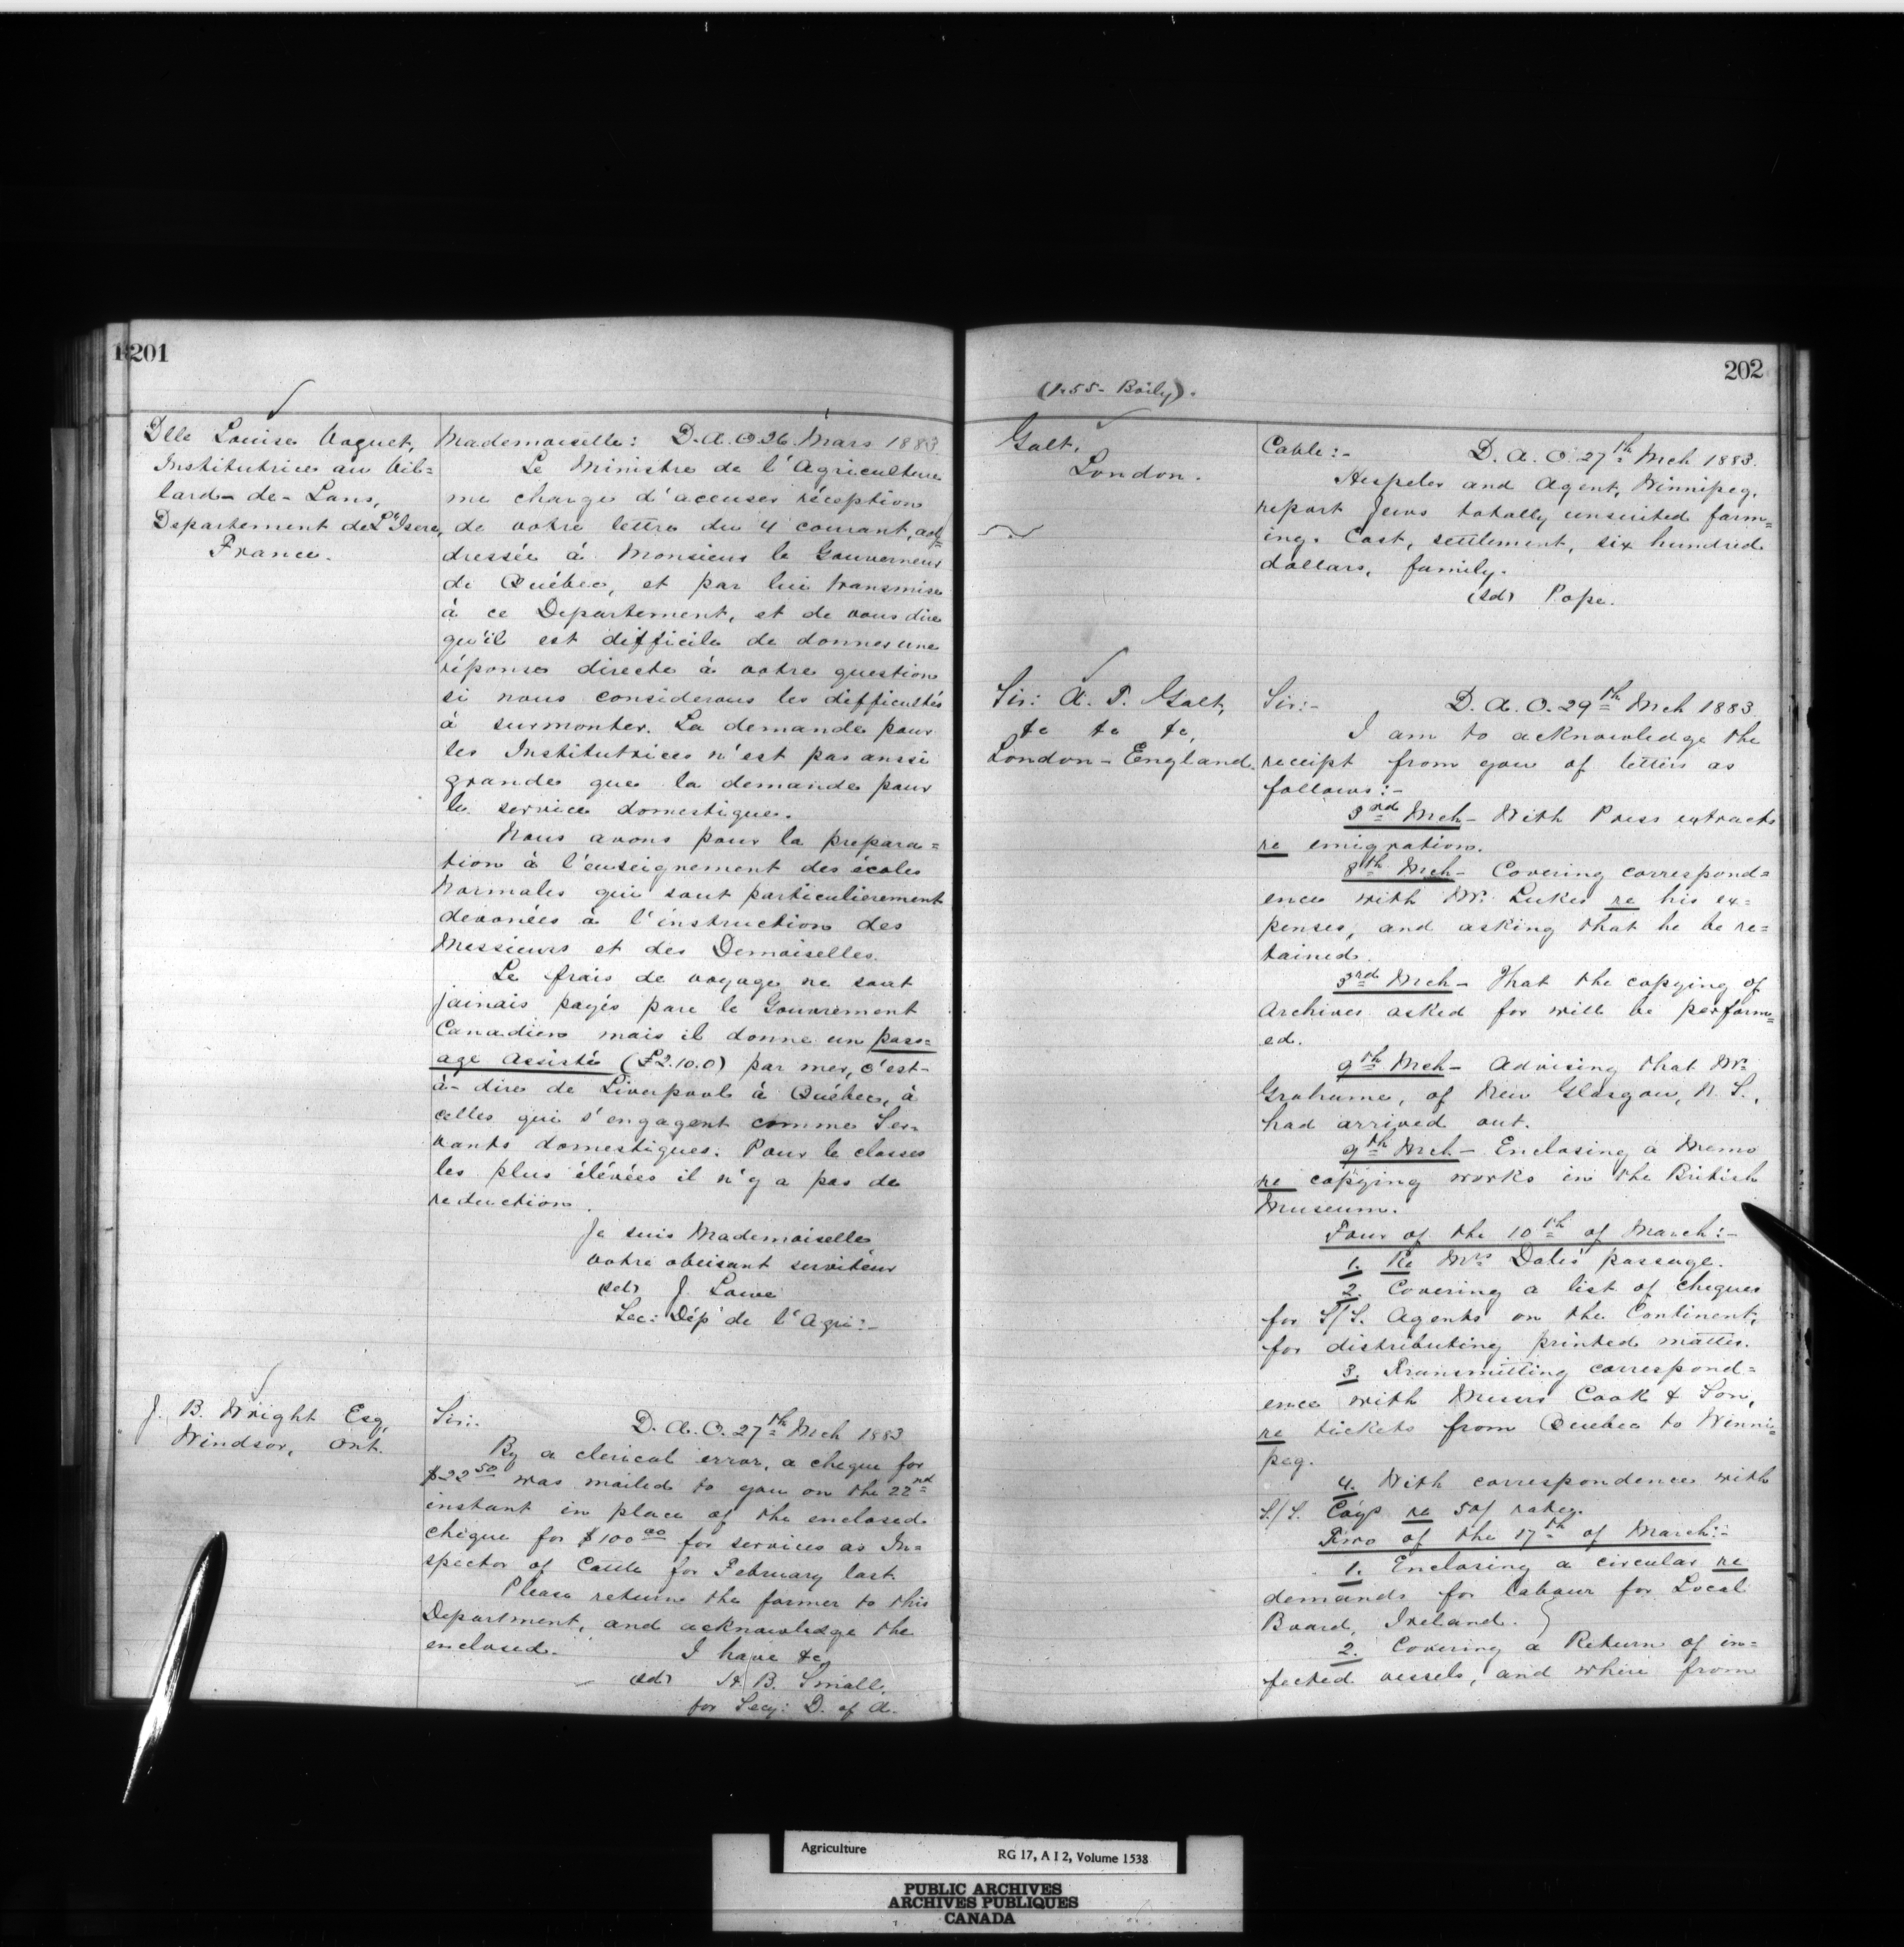 201
Dlle Louise Voguet,
Institutrice au Vil=
lard-de-Lans,
Departement de L'Isere,
France.
Mademoiselle: D.A.O 26 Mars 1883
Le Ministre de l'Agriculture
me charge d'accuser réception
de votre lettre du 4 courant, ad=
dressée à Monsieur le Gouverneur
de Québec, et par lui transmise
à ce Departement, et de vous dire
qu'il est difficile de donner une
réponse directe à votre question
si nous considerons les difficultés
à surmonter. La demande pour
les Institutrices n'est pas aussi
grande que la demande pour
le service domestique.
Nous avons pour la prepara=
tion à l'enseignement des écoles
Normales qui sont particulierement
devouées à l'instruction des
Messieurs et des Demoiselles.
Le frais de voyage ne sont
jamais payés pare le Gouvrement
Canadien mais il donne un pass=
age Assisté (£2.10.0) par mer, c'est-
à-dire de Liverpool à Québec, à
celles qui s'engagent comme Ser=
vants domestiques. Pour le classes
les plus élévées il n'y a pas de
reduction.
Je suis Mademoiselle
votre obeisant serviteur
(sd) J. Lowe
Sec: Dép de l'Agri:-
J. B. Wright Esq,
Windsor, Ont.
Sir:. D.A.O. 27th Mch 1883
By a clerical error, a cheque for
$22 50 was mailed to you on the 22nd
instant in place of the enclosed
cheque for $100 00 for services as In=
spector of Cattle for February last.
Please return the former to this
Department, and acknowledge the
enclosed. I have &c
(sd) H. B. Small,
for Secy: D. of A.
202
(1.55- Baily).
Galt,
London.
Cable:- D.A.O. 27th Mch 1883.
Hespeler and Agent, Winnipeg,
report Jews totally unsuited farm=
ing. Cost, settlement, six hundred
dollars, family.
(sd) Pope.
Sir: A. T. Galt,
&c &c &c,
London - England.
Sir:- D.A.O. 29th Mch 1883
I am to acknowledge the
receipt from you of letters as
follows:-
3rd Mch - With Press extracts
re emigration.
8th Mch - Covering correspond=
ence with Mr. Lukes re his ex=
penses, and asking that he be re=
tained.
3rd Mch - That the copying of
Archives asked for will be perform=
ed.
9th Mch - Advising that Mr.
Grahame, of New Glasgow, N. S.,
had arrived out.
9th Mch - Enclosing a Memo
re copying works in the British
Museum.
Four of the 10th of March:-
1. Re Mrs Dale's passage.
2. Covering a list of cheques
for S/S. Agents on the Continent,
for distributing printed matter.
3. Transmitting correspond=
ence with Messrs Cook & Son,
re tickets from Quebec to Winni=
peg.
4. With correspondence with
S./S. Coys re 50/ rates.
Two of the 17th of March:-
1. Enclosing a circular re
demands for labour for Local
Board, Ireland.
2. Covering a Return of in=
fected vessels, and where from
Agriculture RG 17, A I 2, Volume 1538
PUBLIC ARCHIVES
ARCHIVES PUBLIQUES
CANADA